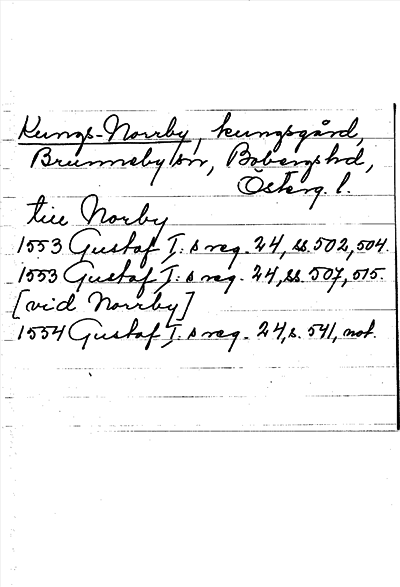 Kungs-Norrby, kungsgård,
Brunneby sn, Bobergs hd,
Österg. l.
till Norby
1553 Gustaf I:s reg. 24, ss. 502, 504.
1553 Gustaf I:s reg. 24, ss. 507, 515.
[vid Norrby]
1554 Gustaf I:s reg. 24, s. 541, not.